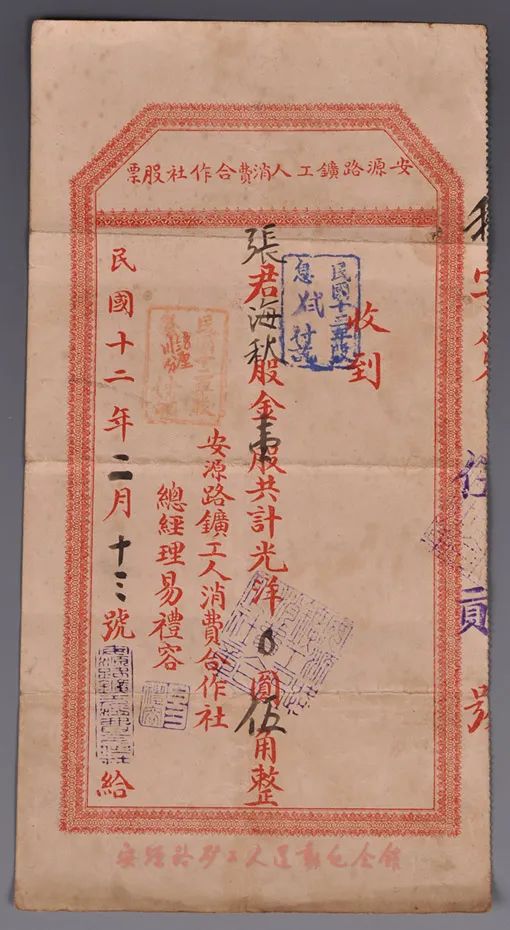 安源路鑛工人消費合作社股票
收到
張君海秋股金壹股共計光洋0圓伍角整
安源路鑛工人消費合作社
總經理易禮容
民國十二年二月十三號
給
民國十二年股
息 付訖
字第
號